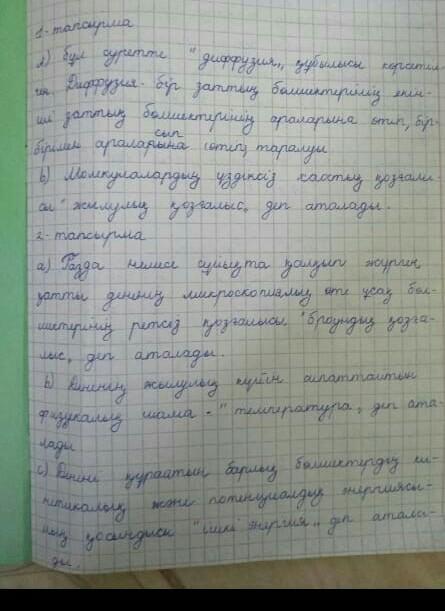 1-тапсырма
а) бұл суретте "диффузия" құбылысы көрсетіл-
ген. Диффузия - бір заттың бөлшектерінің екін-
ші заттың бөлшектерінің араларына өтіп, бір-
бірімен араласып
араларына өтіп, таралуы
b) Молекулалардың үздіксіз хаостық қозғалы-
сы "жылулық қозғалыс" деп аталады.
2-тапсырма
а) Газда немесе сұйықта қалқып жүрген,
қатты дененің микроскопиялық өте ұсақ бөл-
шектерінің ретсіз қозғалысы "броундық қозға-
лыс" деп аталады.
b) Дененің жылулық күйін сипаттайтын
физикалық шама - "температура" деп ата-
лады
с) Денені құрайтын барлық бөлшектердің ки-
нетикалық және потенциалдық энергиясы-
ның қосындысы "ішкі энергия" деп атала-
ды.